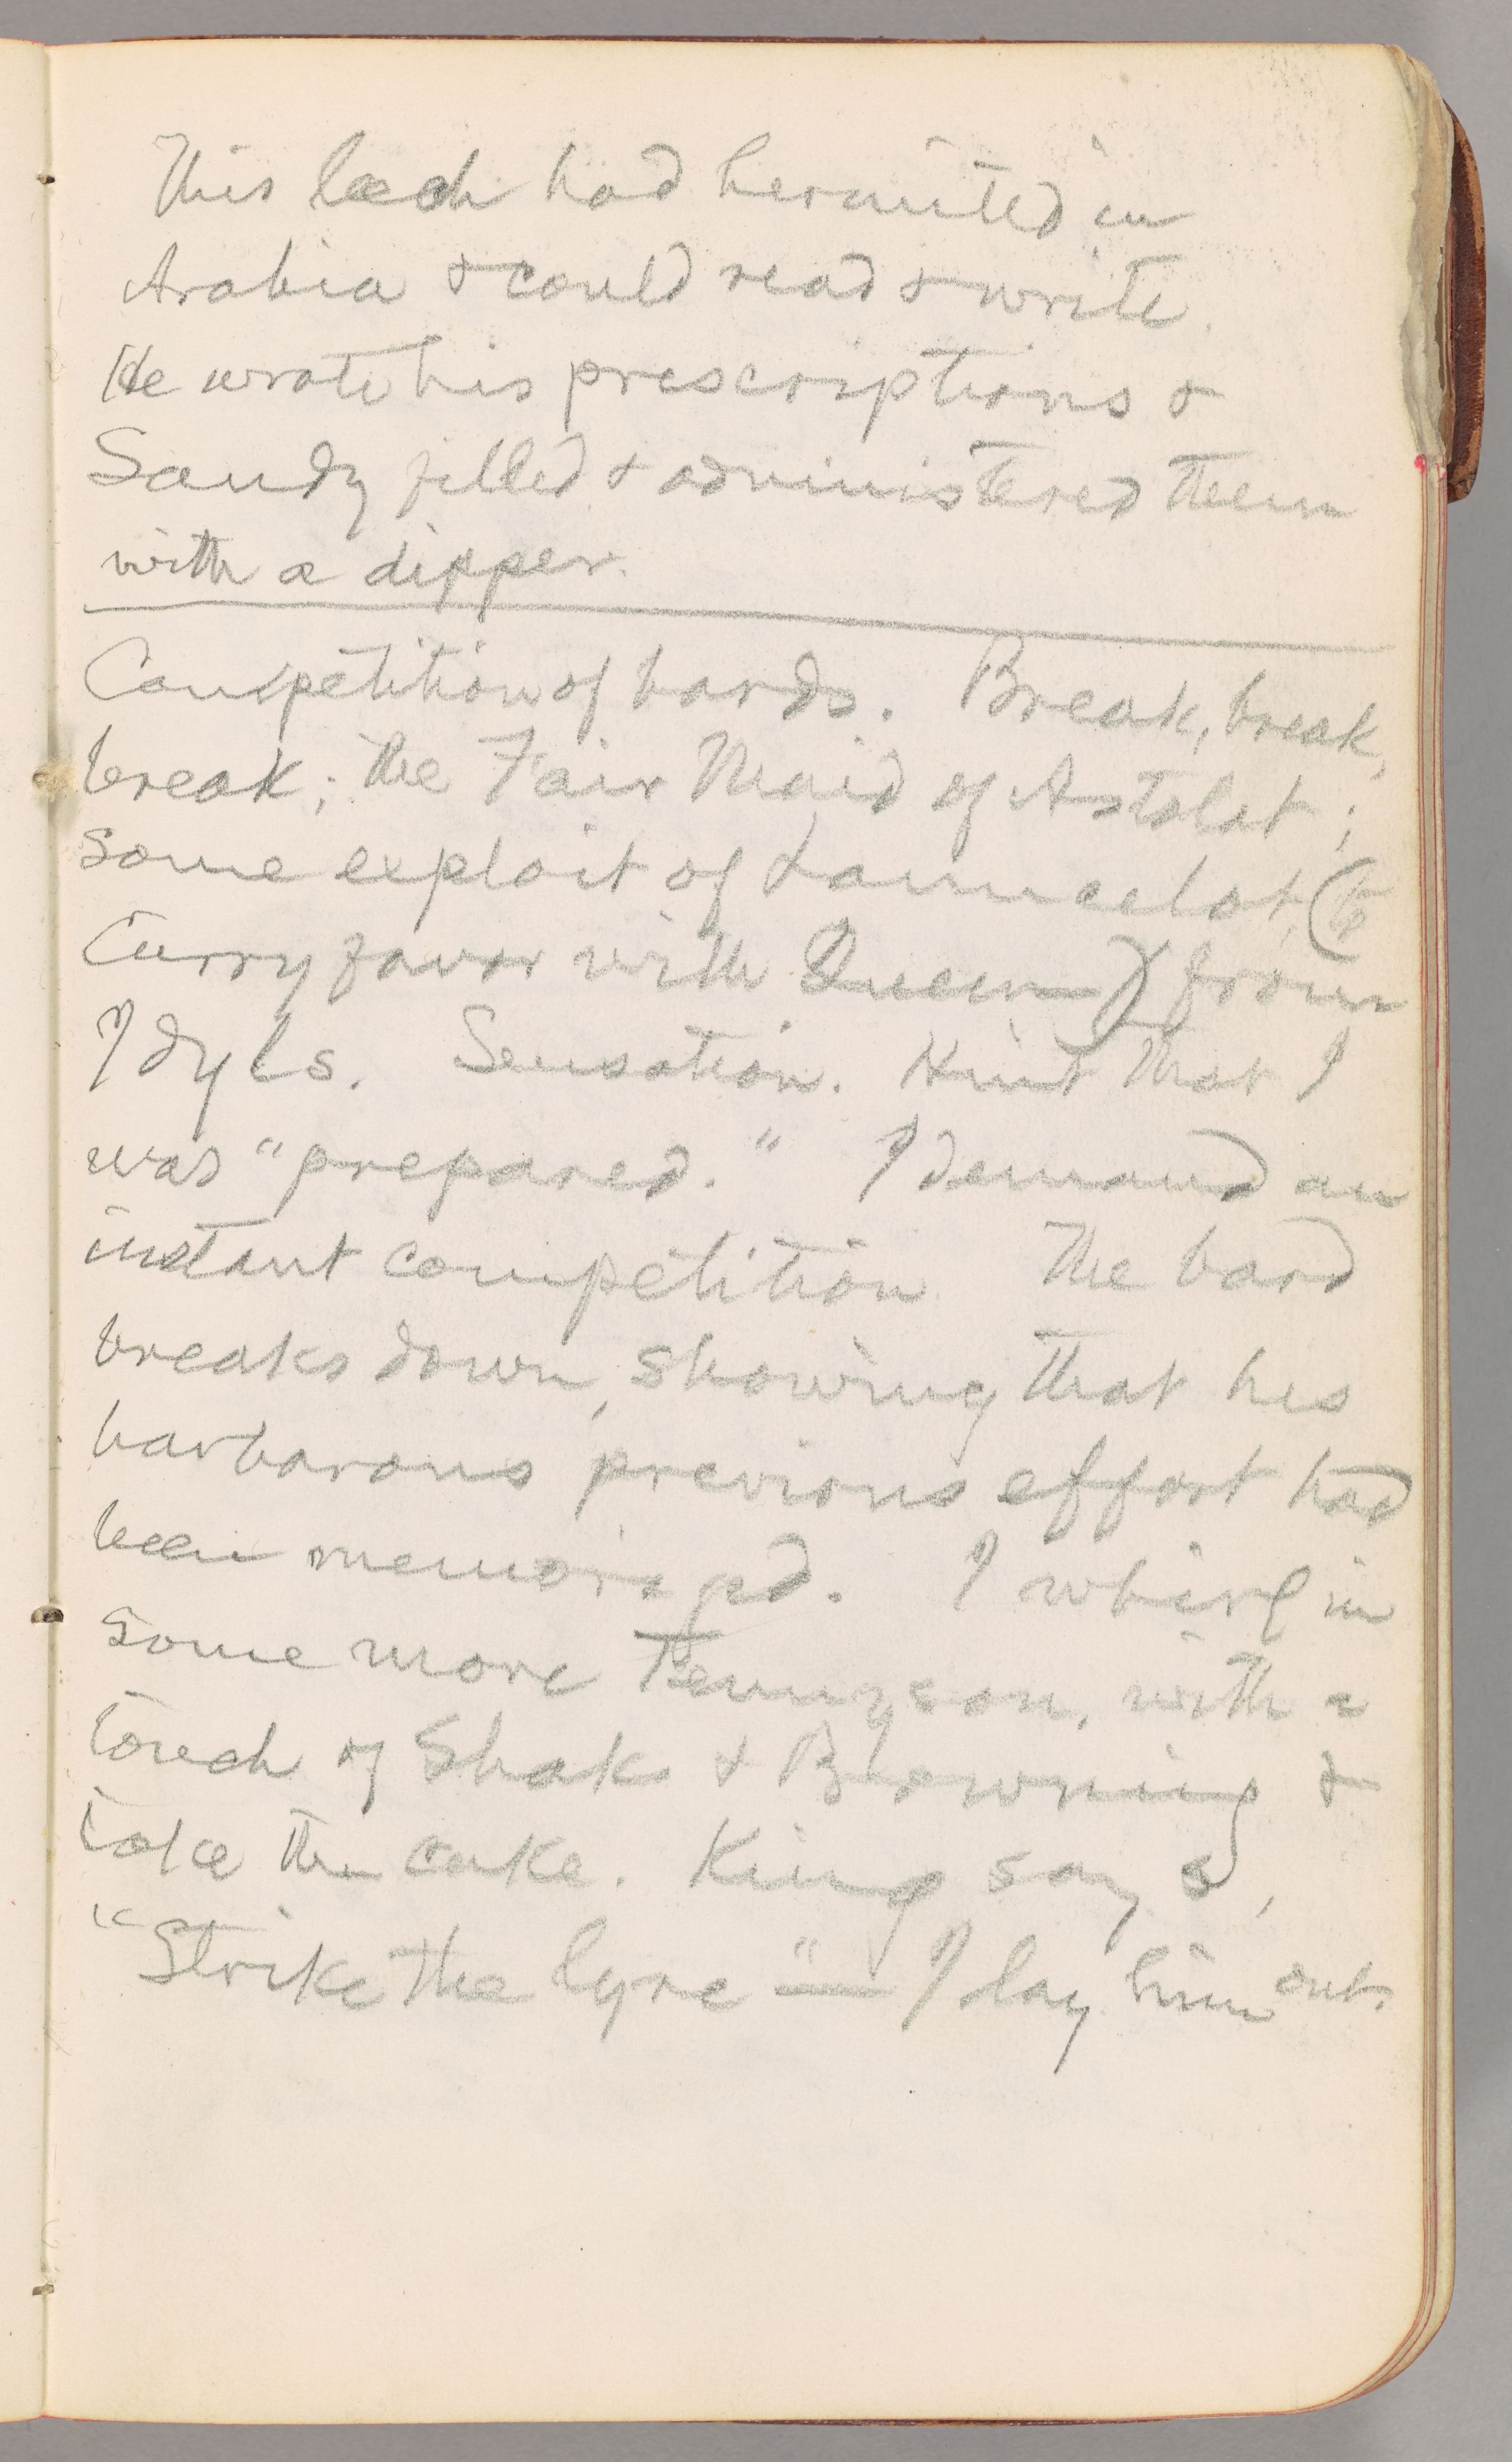 This leech had hermited in
Arabia & could read & write.
He wrote his prescriptions &
Sandy filled & administered them
with a dipper.
Competition of bards. Break, break,
break; the Fair Maid of Astolat;
some exploit of Launcelot, (to
curry favor with Queen) from
Idyls. Sensation. Hint that I
was "prepared." I demand an
instant competition. The bard
breaks down, showing that his
barbarous previous effort had
been memorized. I whirl in
some more Tennyson, with a
touch of Shak & Browning &
take the cake. King says,
"Strike the lyre"— I lay him out.